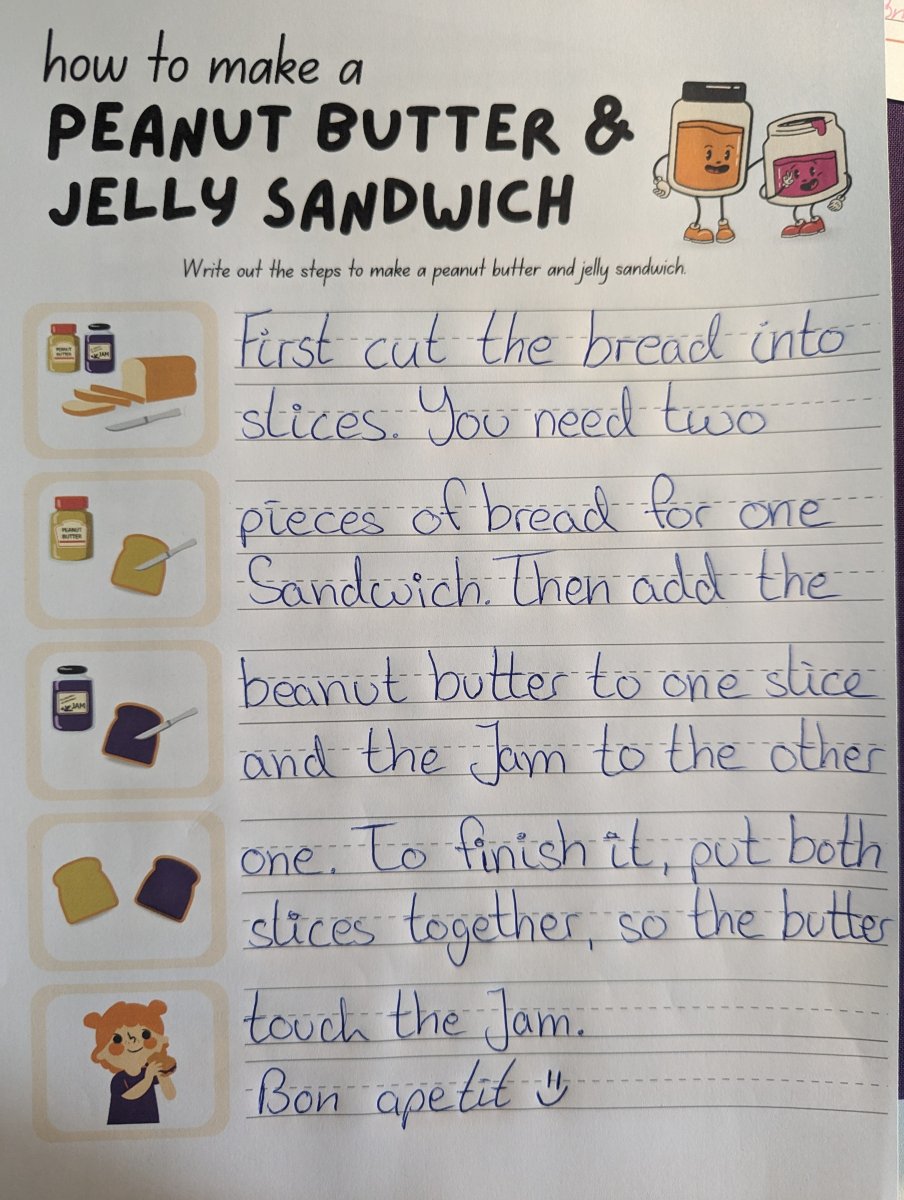 how to make a
PEANUT BUTTER &
JELLY SANDWICH
Write out the steps to make a peanut butter and jelly sandwich.
First cut the bread into
slices. You need two
pieces of bread for one
Sandwich. Then add the
beanut butter to one slice
and the Jam to the other
one. To finish it, put both
slices together, so the butter
touch the Jam.
Bon apetit
PEANUT
BUTTER
JAM
PEANUT
BUTTER
JAM